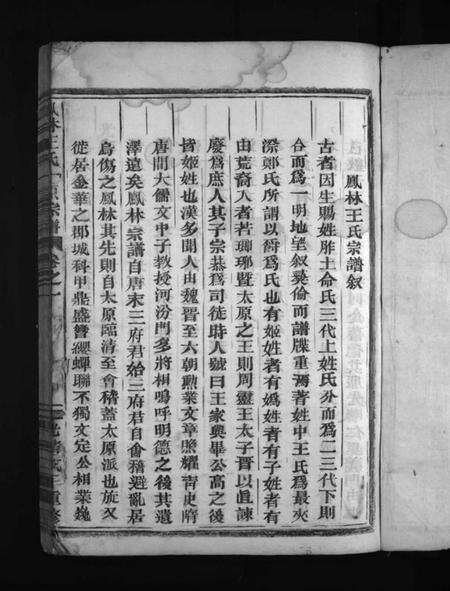 鳳林王氏宗譜叙
古者因生賜姓胙土命氏三代上姓氏分而為二三代下則
合而為一明地望叙彛倫而譜牒重焉著姓中王氏為最夾
漈鄭氏所謂以爵為氏也有姬姓者有媯姓者有子姓者有
由荒裔入者若瑯琊暨太原之王則周靈王太子晋以直諫
廢為庶人其子宗恭為司徒時人號曰王家興畢公高之後
皆姬姓也漢多聞人由魏晋至六朝勲業文章照耀青史隋
唐間大儒文中子教授河汾門多將相嗚呼明德之後其遺
澤遠矣鳳林宗譜自唐末三府君始三府君自會稽避亂居
烏傷之鳳林其先則自太原臨清至會稽蓋太原派也旋又
徙居金華之郡城科甲鼎盛簪纓蟬聯不獨文定公相業巍